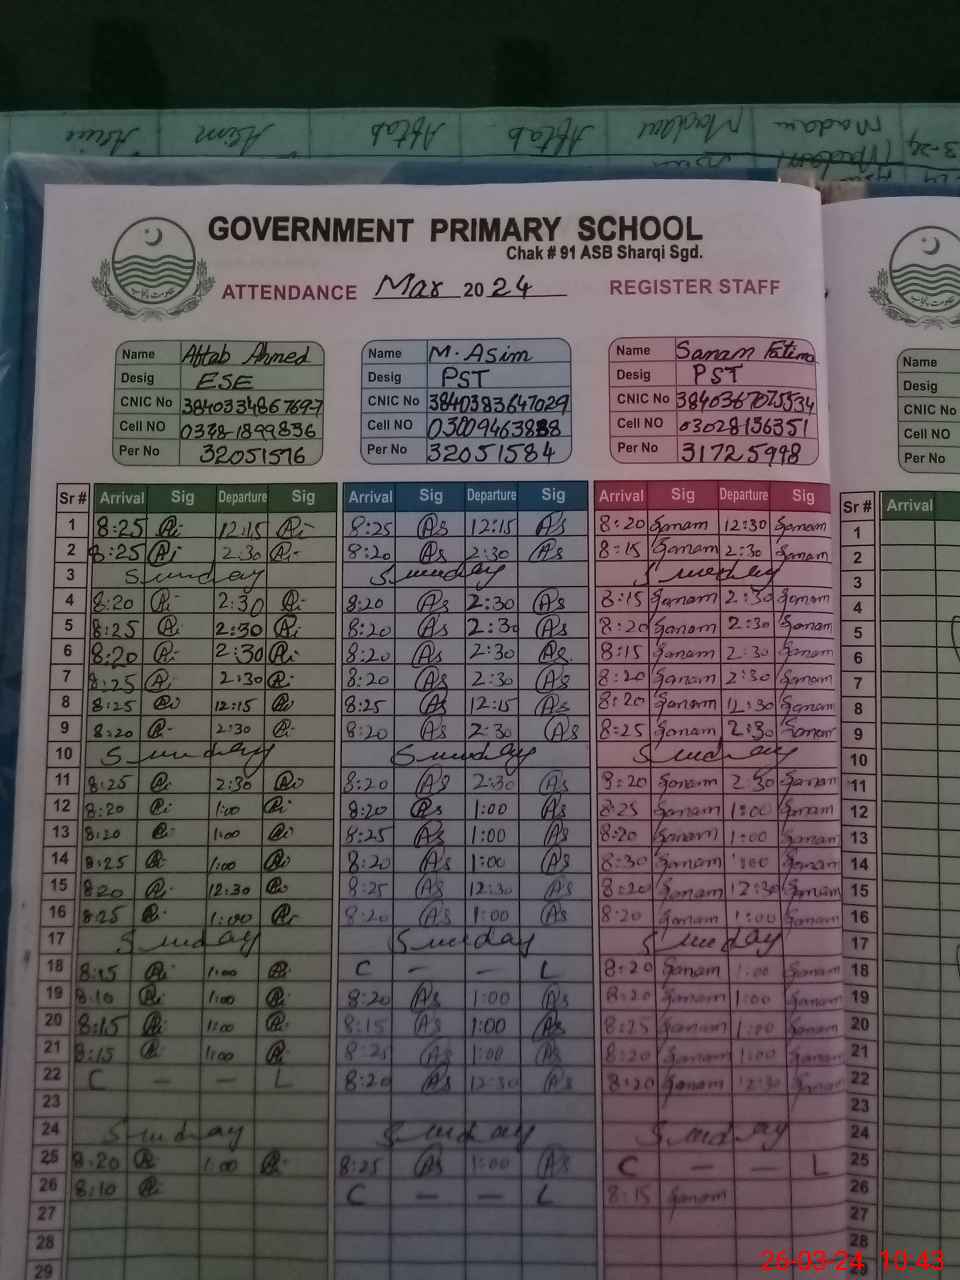 GOVERNMENT PRIMARY SCHOOL
Chak # 91 ASB Sharqi Sgd.
ATTENDANCE Mar 2024 REGISTER STAFF
Name Aftab Ahmed Name M. Asim Name Sanam Fatima Name
Desig ESE Desig PST Desig PST Desig
CNIC No CNIC No 3840383647029 CNIC No 3840367075534 CNIC No
Cell NO 0338-1899836 Cell NO Cell NO 03028136351 Cell NO
Per No 32051576 Per No 32051584 Per No 31725998 Per No
Sr # Arrival Sig Departure Sig Arrival Sig Departure Sig Arrival Sig Departure Sig Sr # Arrival
1 8:25 12:15 8:25 As 12:15 As 8:20 Sanam 12:30 Sanam 1
2 8:25 2:30 8:20 As 2:30 As 8:15 Sanam 2:30 Sanam 2
3 Sunday Sunday Sunday 3
4 8:20 2:30 8:20 As 2:30 As 8:15 Sanam 2:30 Sanam 4
5 8:25 2:30 8:20 As 2:30 As 8:20 Sanam 2:30 Sanam 5
6 8:20 2:30 8:20 As 2:30 As 8:15 Sanam 2:30 Sanam 6
7 8:25 2:30 8:20 As 2:30 As 8:20 Sanam 2:30 Sanam 7
8 8:25 12:15 8:25 As 12:15 As 8:20 Sanam 12:30 Sanam 8
9 8:20 2:30 8:20 As 2:30 As 8:25 Sanam 2:30 Sanam 9
10 Sunday Sunday Sunday 10
11 8:25 2:30 8:20 As 2:30 As 8:20 Sanam 2:30 Sanam 11
12 8:20 1:00 8:20 As 1:00 As 8:25 Sanam 1:00 Sanam 12
13 8:20 1:00 8:25 As 1:00 As 8:20 Sanam 1:00 Sanam 13
14 8:25 1:00 8:20 As 1:00 As 8:30 Sanam 1:00 Sanam 14
15 8:20 12:30 8:25 As 12:30 As 8:20 Sanam 12:30 Sanam 15
16 8:25 1:00 8:20 As 1:00 As 8:20 Sanam 1:00 Sanam 16
17 Sunday Sunday Sunday 17
18 8:15 1:00 C — — L 8:20 Sanam 1:00 Sanam 18
19 8:10 1:00 8:20 As 1:00 As 8:20 Sanam 1:00 Sanam 19
20 8:15 1:00 8:15 As 1:00 As 8:25 Sanam 1:00 Sanam 20
21 8:15 1:00 8:25 As 1:00 As 8:20 Sanam 1:00 Sanam 21
22 C — — L 8:20 As 12:30 As 8:20 Sanam 12:30 Sanam 22
23 23
24 Sunday Sunday Sunday 24
25 8:20 1:00 8:25 As 1:00 As C — — L 25
26 8:10 C — — L 8:15 Sanam 26
27 27
28 28
29
26-03-24 10:43